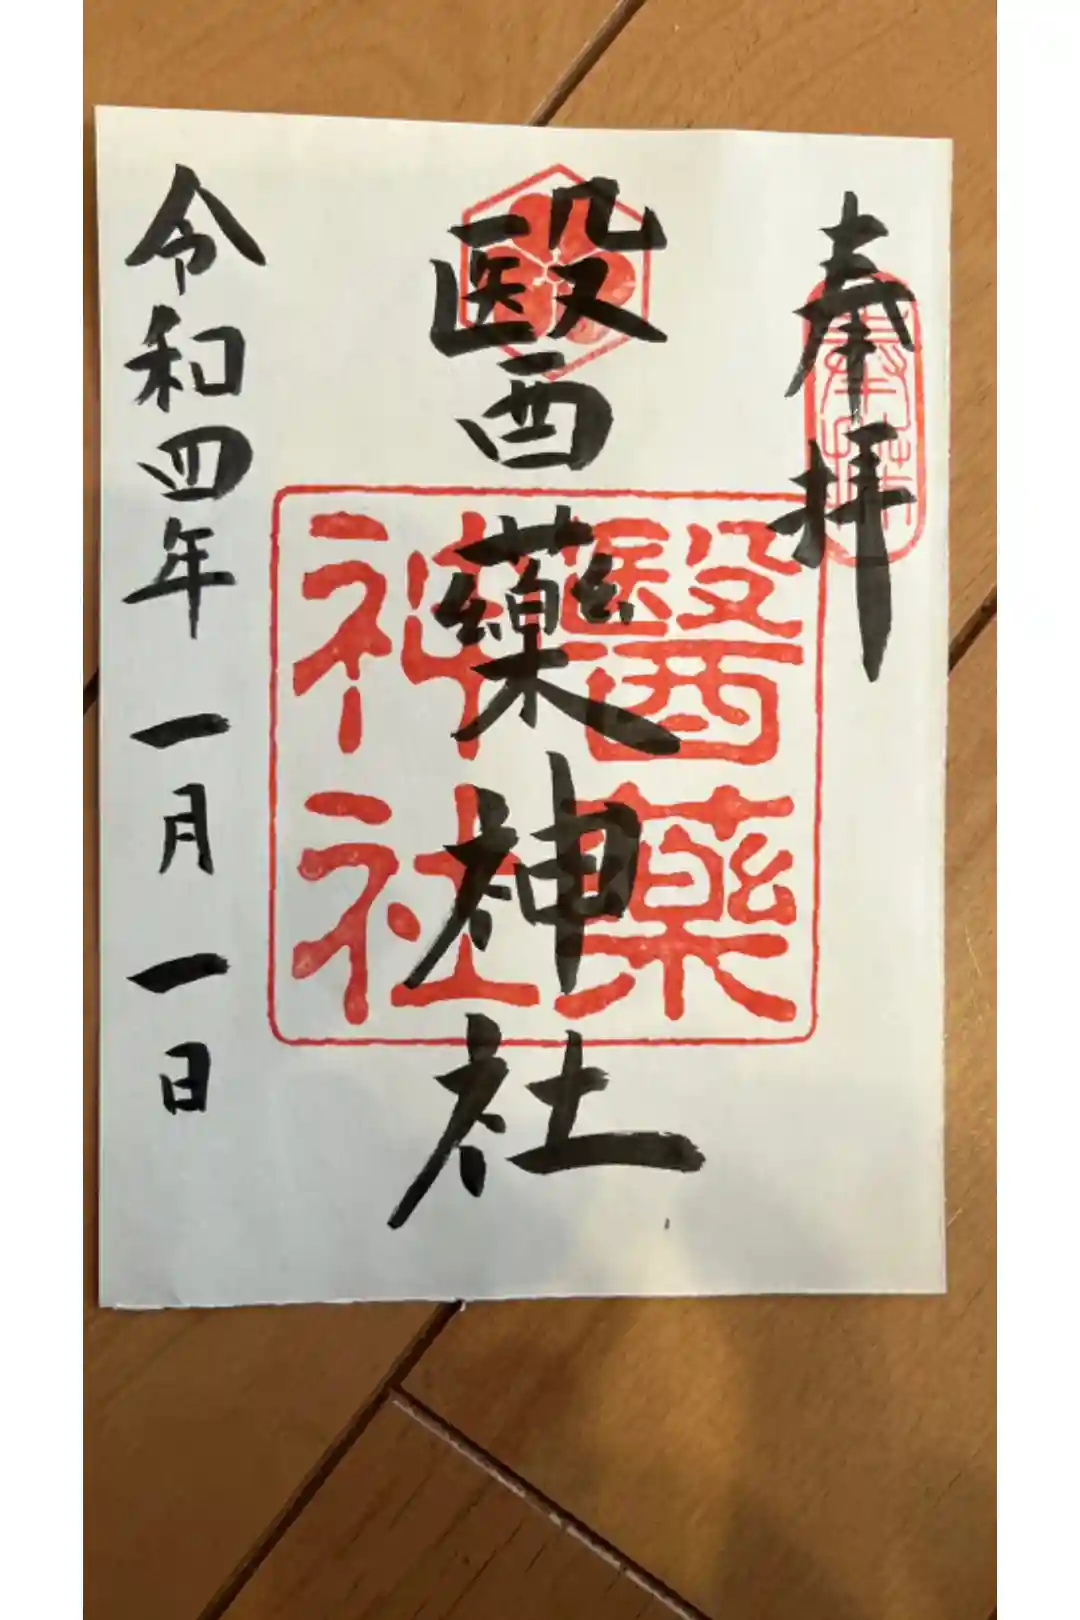 奉拝
奉拝
醫藥神社
醫藥
神社
令和四年一月一日